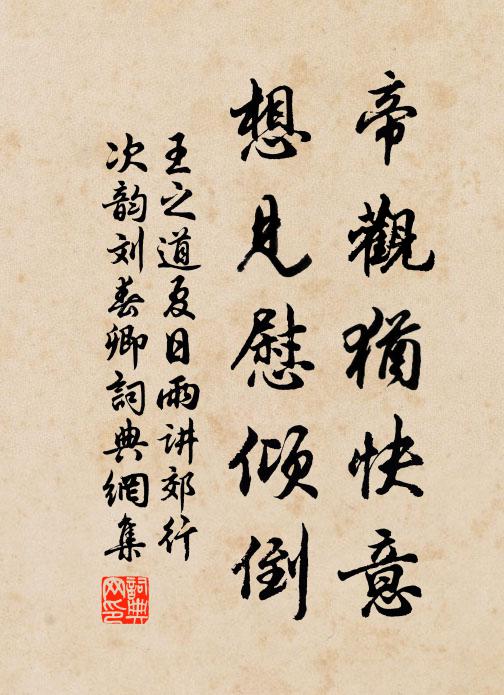 帝觀猶快意
想見慰傾倒
王之道夏日雨讲郊行
次韵刘春卿詞典網集
詞典网印